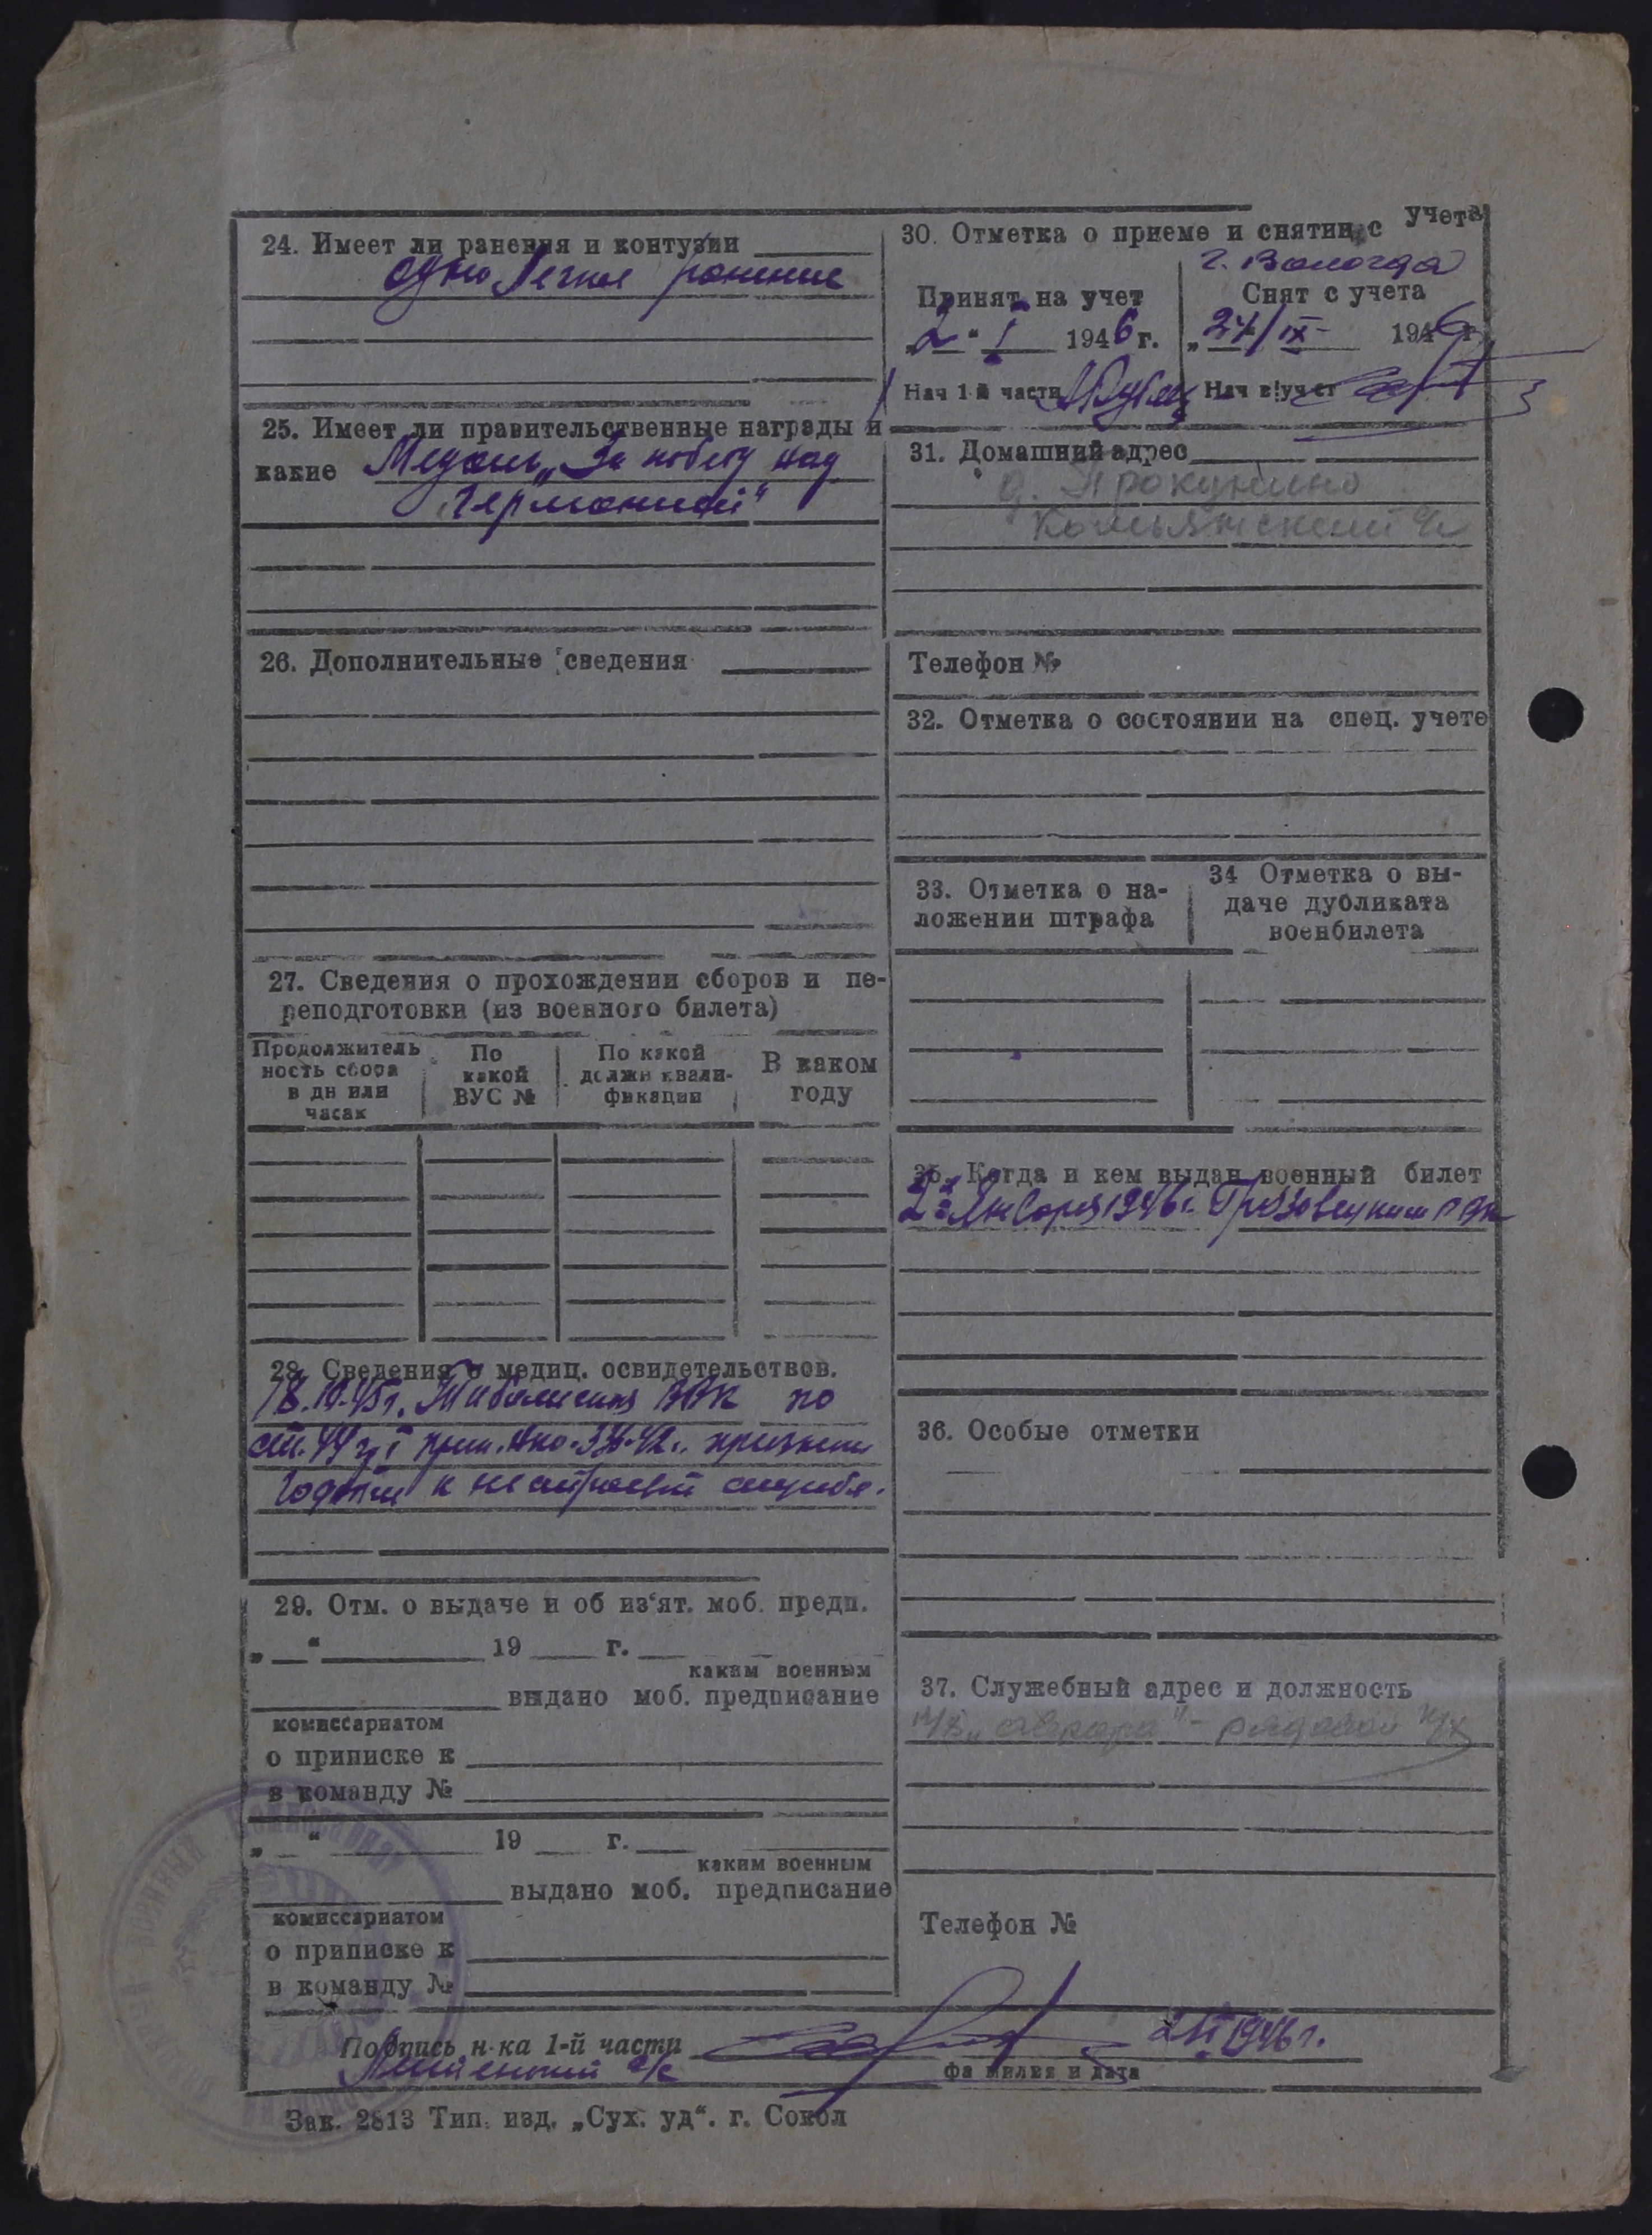 24. Имеет ли ранения и контузии
одно легкое ранение
25. Имеет ли правительственные награды и
какие Медаль „За победу над
Германией“
26. Дополнительные сведения
27. Сведения о прохождении сборов и пе-
реподготовки (из военного билета)
Продолжитель
ность сбора
в дн или
часах
По
какой
ВУС №
По какой
должн квали-
фикации
В каком
году
28. Сведения о медиц. освидетельствов.
18.10.45г. ВВК по
ст. 44 гр I прик. НКО-336-42г. признан
годным к нестроевой службе.
29. Отм. о выдаче и об из‘ят. моб. предп.
„ “ 19 г.
каким военным
выдано моб. предписание
комиссариатом
о приписке к
в команду №
„ “ 19 г.
каким военным
выдано моб. предписание
комиссариатом
о приписке к
в команду №
30. Отметка о приеме и снятии с учета
г. Вологда
Принят на учет
„2“ I 1946 г.
Нач 1-й части
Снят с учета
„24/IX 1946 г.
Нач в/учет
31. Домашний адрес
д. Прокунино
с/с
Телефон №
32. Отметка о состоянии на спец. учете
33. Отметка о на-
ложении штрафа
34 Отметка о вы-
даче дубликата
военбилета
35. Когда и кем выдан военный билет
2 января 1946г. Грязовецким РВК
36. Особые отметки
37. Служебный адрес и должность
„Аврора“ - рядовой к/х
Телефон №
Подпись н-ка 1-й части
2/I 1946 г.
с/с
фамилия и дата
Зак. 2813 Тип. изд. „Сух. уд“. г. Сокол